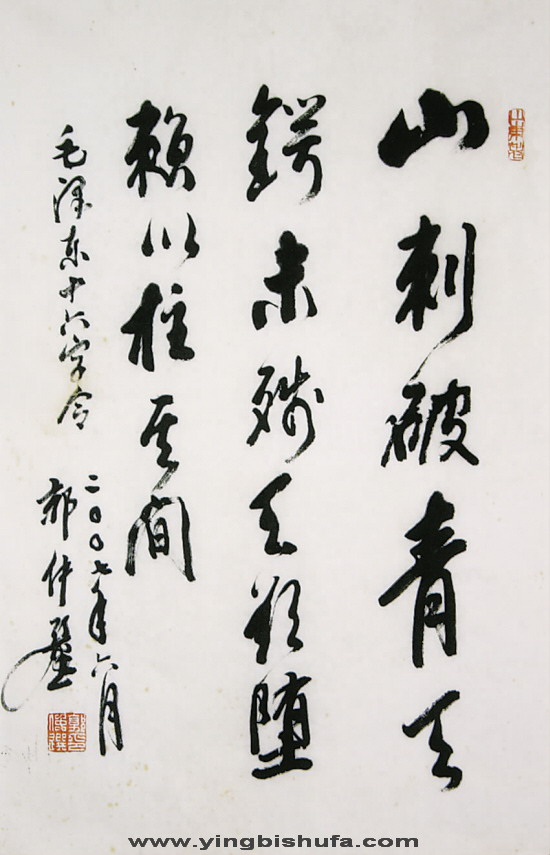 山刺破青天
锷未残天欲堕
赖以柱其间
毛泽东十六字令
二〇〇七年六月
郭仲选
www.yingbishufa.com